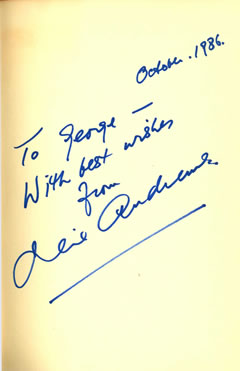 October. 1986.
To George –
With best wishes
from
Andrews